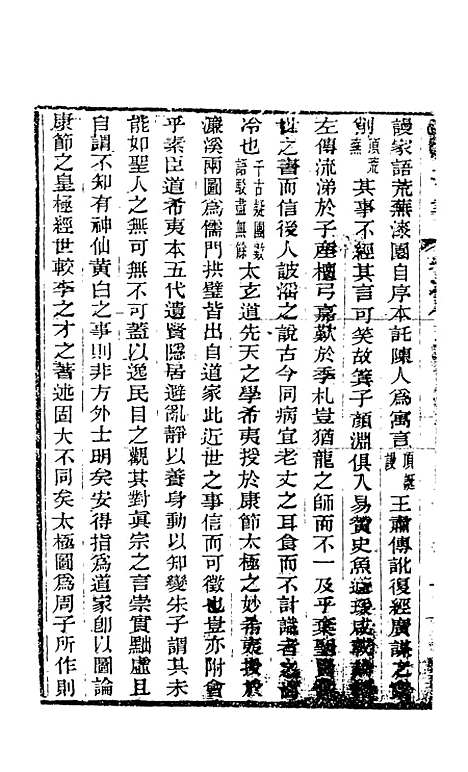 謾家語荒蕪漆園自序本託陳人為寓言頂謾王肅傳訛復經廣謀之
削頂荒蕪其事不經其言可笑故箕子顏淵俱入易贊史魚蘧瑗咸載
左傳流涕於子產檀弓嘉歎於季札豈猶龍之師而不一及乎棄聖
世之書而信後人詖滛之說古今同病宜老丈之耳食而不計識者之齒
冷也千古疑團數語駁盡無餘太玄道先天之學希夷授於康節太極之妙希夷授於
濂溪兩圖爲儒門拱璧皆出自道家此近世之事信而可徵也豈亦附會
乎蒙臣道希夷本五代遺賢隱居避亂靜以養身動以知變朱子謂其未
能如聖人之無可無不可蓋以逸民目之觀其對眞宗之言崇實黜虛且
自謂不知有神仙黃白之事則非方外士明矣安得指爲道家卽以圖論
康節之皇極經世較李之才之著述固大不同矣太極圖爲周子所作則